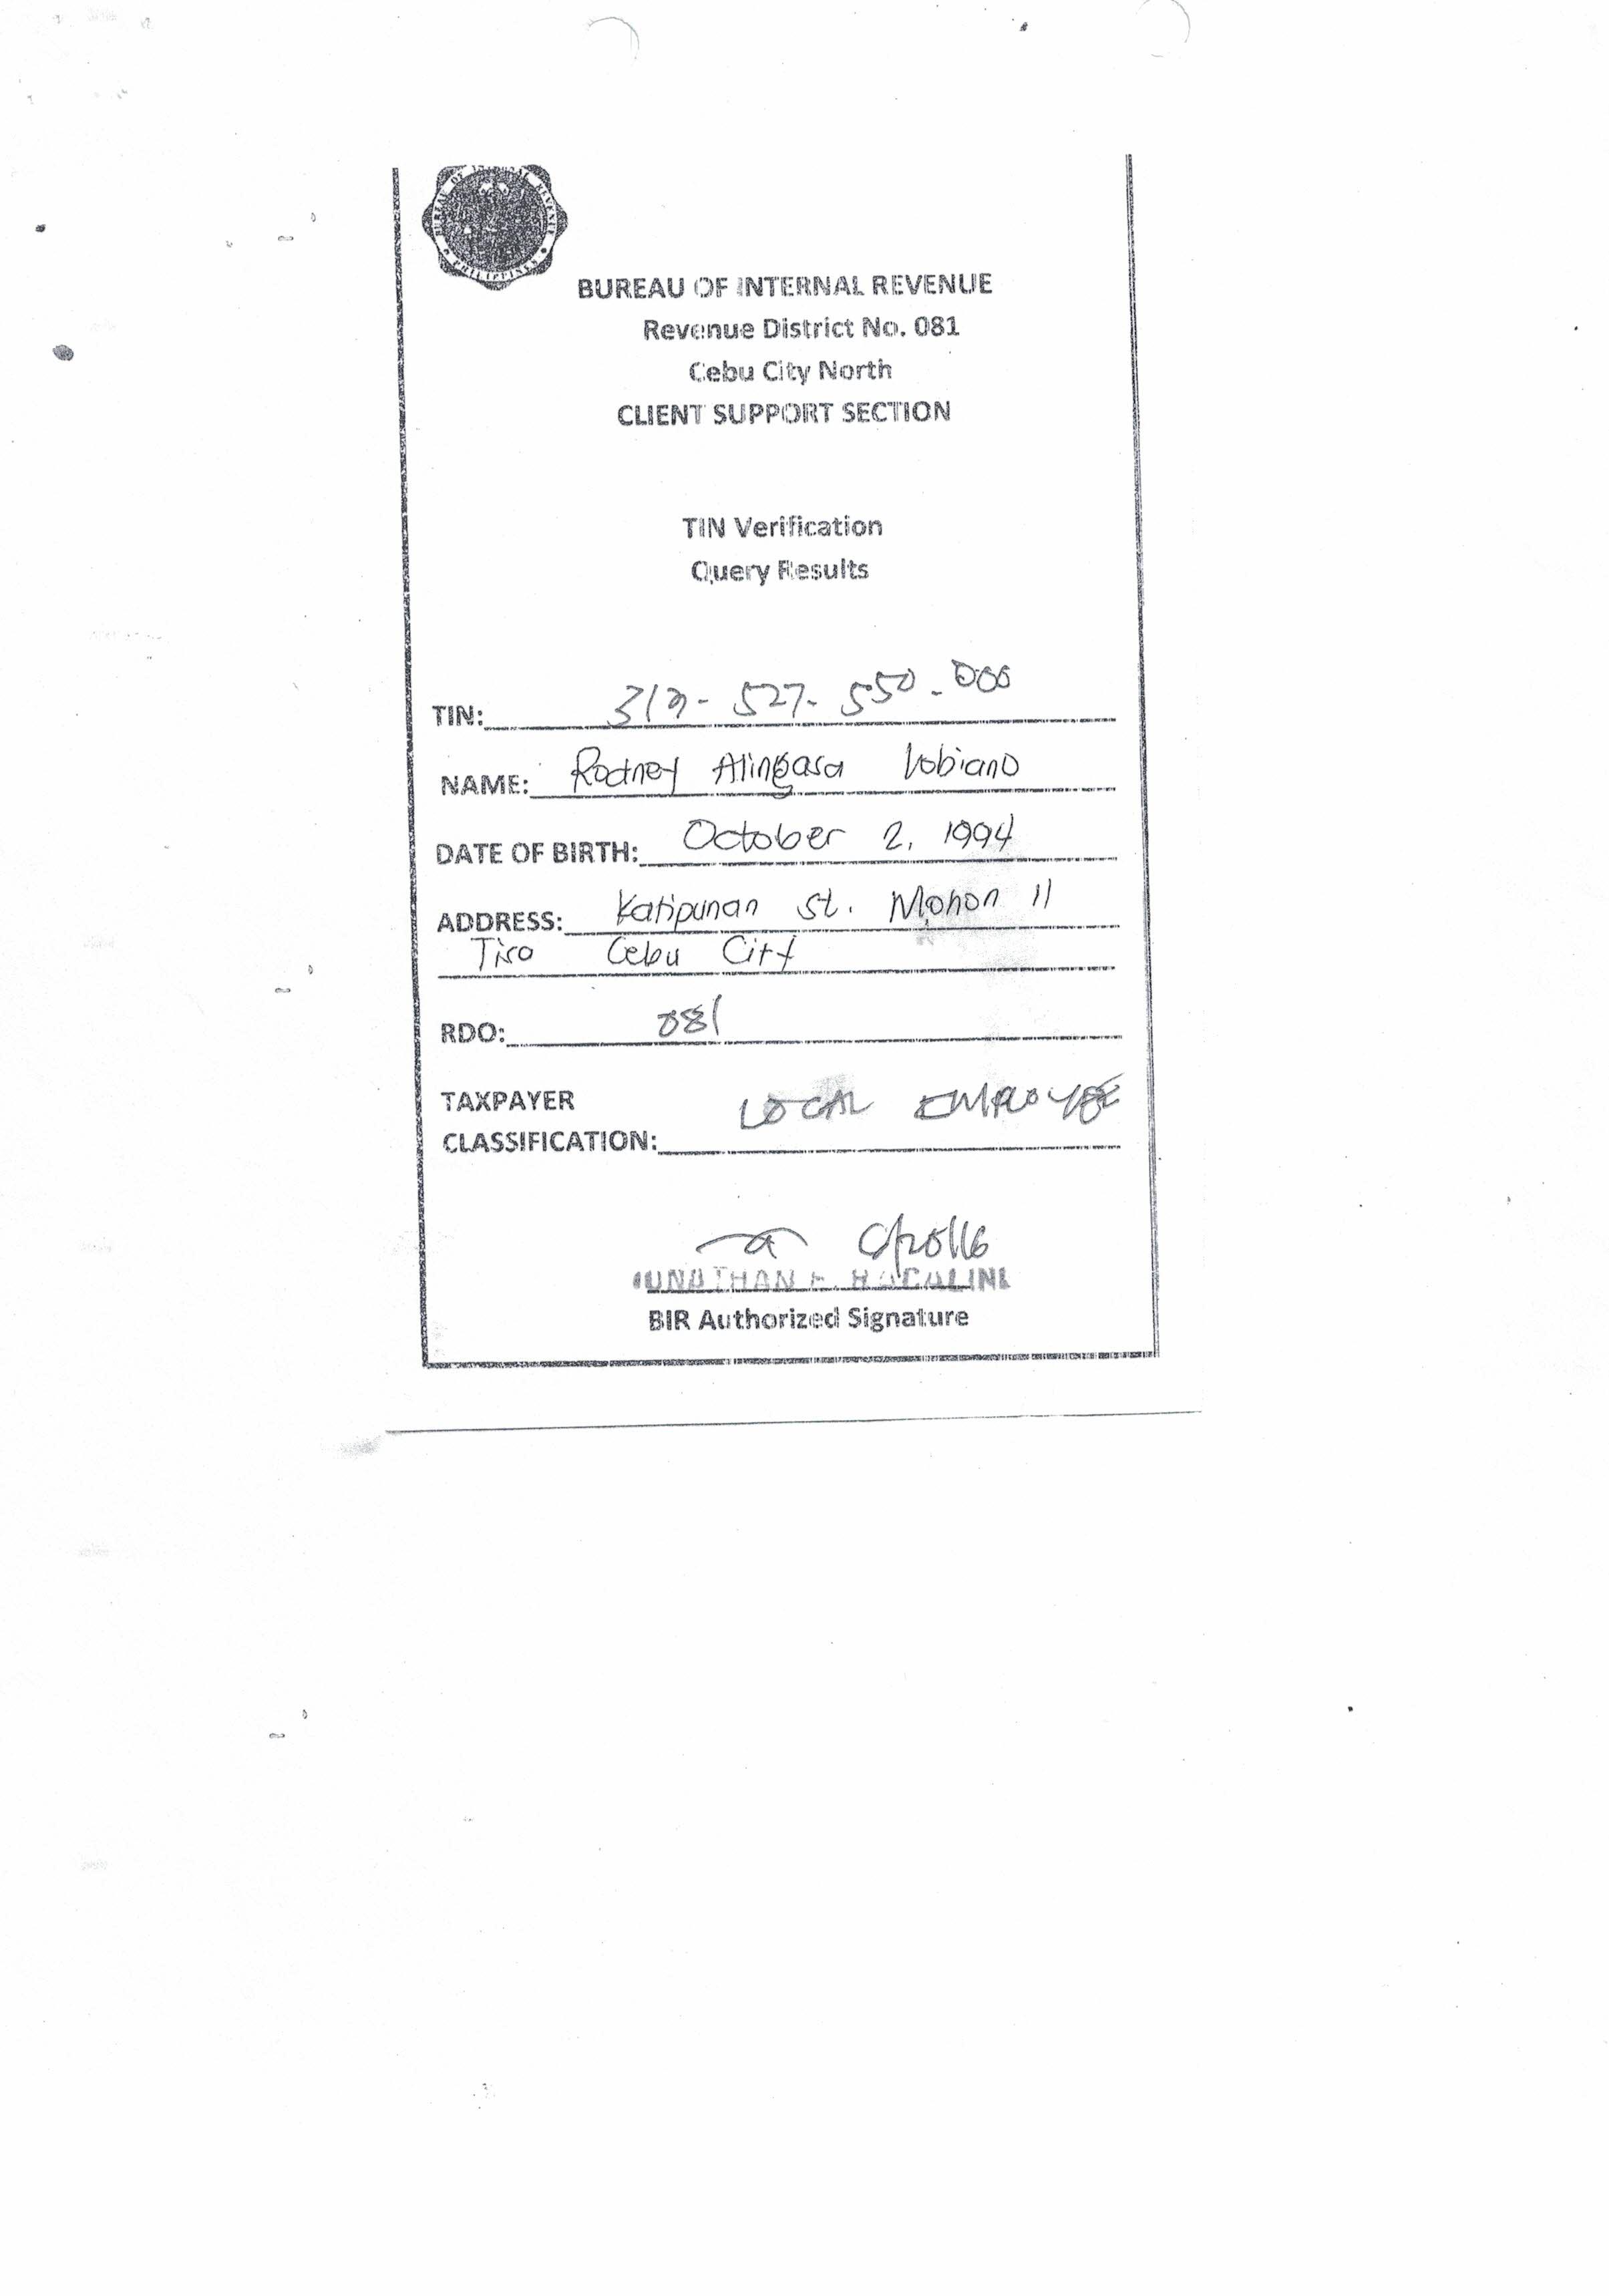 BUREAU OF INTERNAL REVENUE
PHILIPPINES
BUREAU OF INTERNAL REVENUE
Revenue District No. 081
Cebu City North
CLIENT SUPPORT SECTION
TIN Verification
Query Results
TIN: 319-527-550-000
NAME: Rodney Alingasa Lobiano
DATE OF BIRTH: October 2, 1994
ADDRESS: Katipunan St. Mohon II
Tisa Cebu City
RDO: 081
TAXPAYER
LOCAL EMPLOYEE
CLASSIFICATION:
BIR Authorized Signature